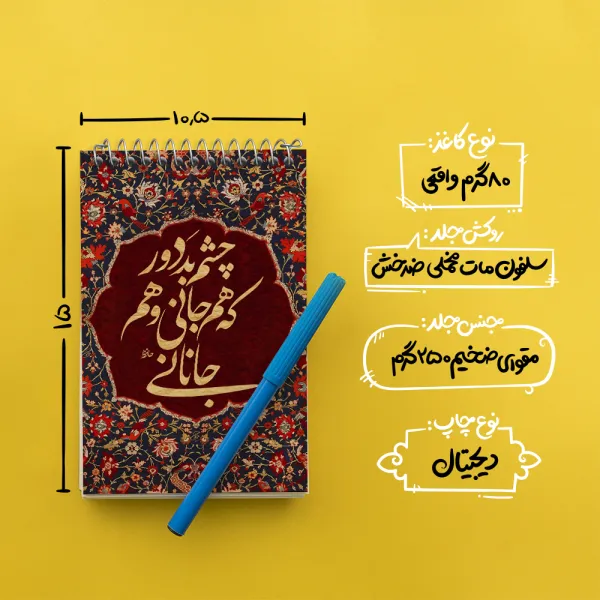 ۱۰٫۵
۱۵
چشم بد دور
که هم جانی و هم
جانانی
حافظ
نوع کاغذ:
۸۰ گرم واقعی
روکش جلد:
سلفون مات مخملی ضدخش
جنس جلد:
مقوای ضخیم ۲۵۰ گرم
نوع چاپ:
دیجیتال